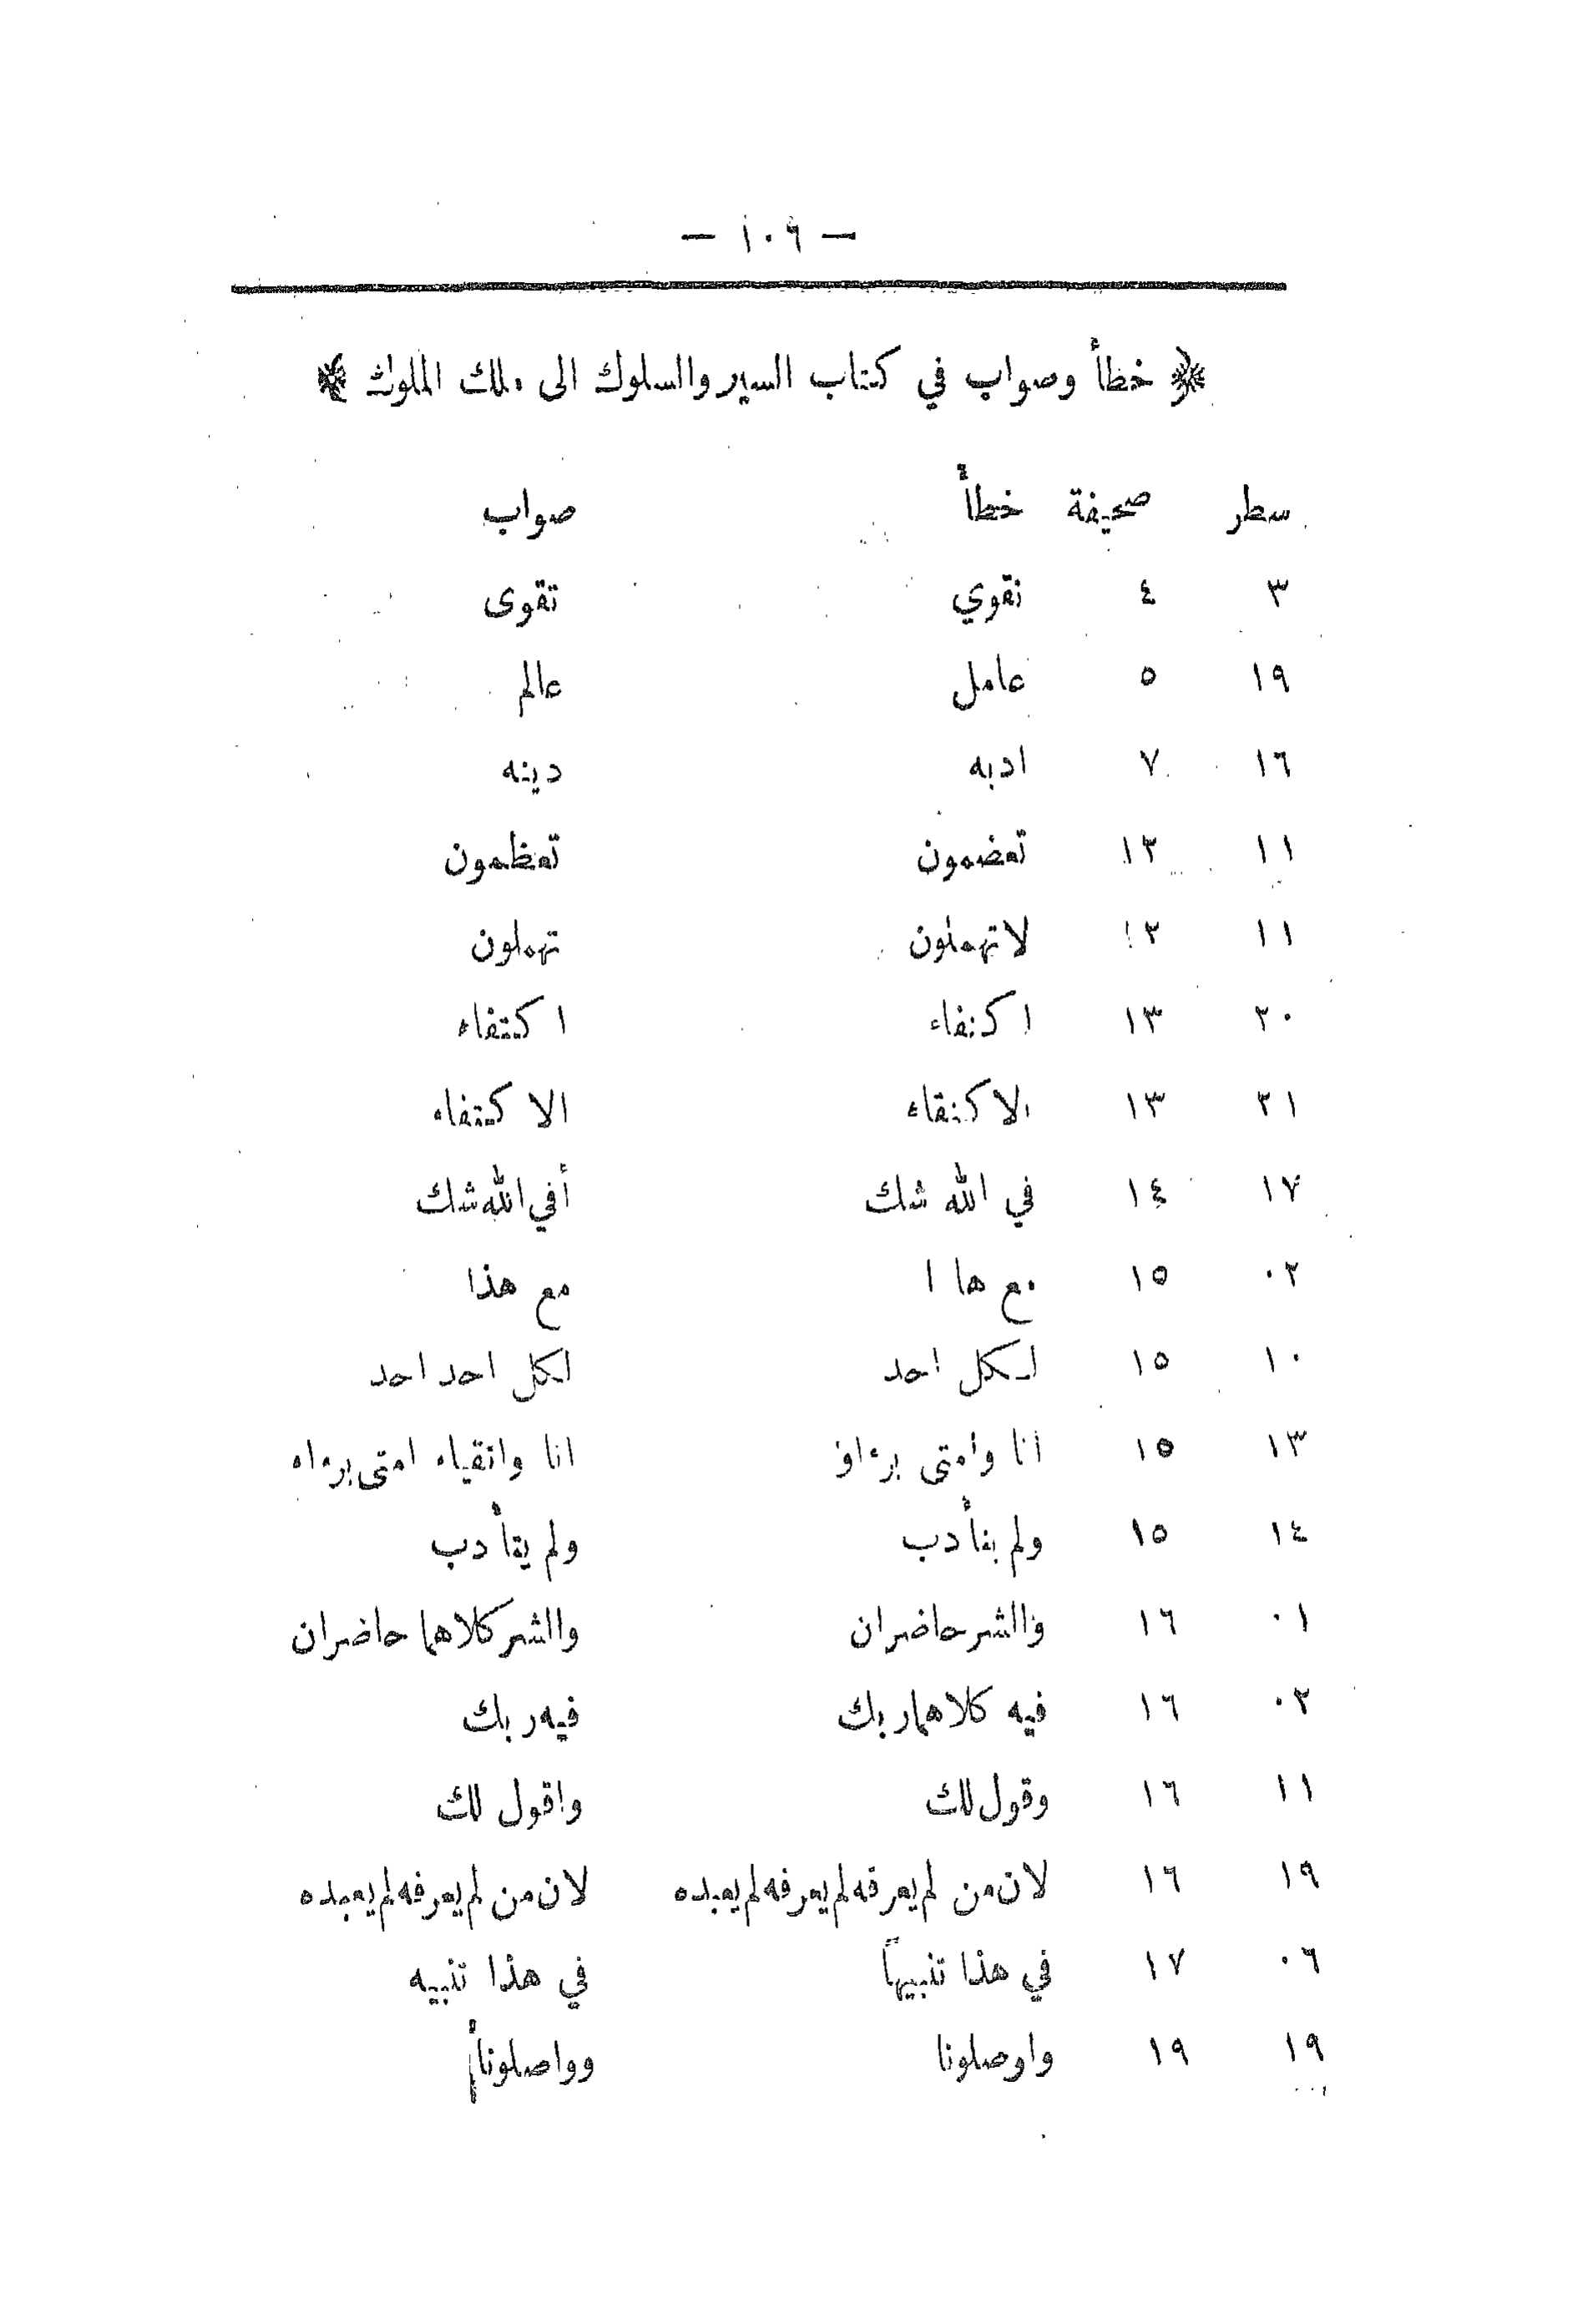 — ١٠٦ —
﴿ خطأ وصواب في كتاب السير والسلوك الى ملك الملوك ﴾
سطر صحيفة خطأ صواب
٣ ٤ نقوي تقوى
١٩ ٥ عامل عالم
١٦ ٧ ادبه دينه
١١ ١٢ تعضمون تعظمون
١١ ١٢ لاتهملون تهملون
٢٠ ١٣ اكنفاء اكتفاء
٢١ ١٣ الاكنقاء الاكتفاء
١٧ ١٤ في الله شك أفي الله شك
٠٢ ١٥ مع ها ا مع هذا
١٠ ١٥ لكل احد لكل احد احد
١٣ ١٥ انا وامتى برءاؤ انا واتقياء امتى برءاء
١٤ ١٥ ولم بنأدب ولم يتأدب
٠١ ١٦ والشرحاضران والشركلاهما حاضران
٠٢ ١٦ فيه كلاهماربك فيه ربك
١١ ١٦ وقول لك واقول لك
١٩ ١٦ لان من لم يعرفه لم يعرفه لم يعبده لان من لم يعرفه لم يعبده
٠٦ ١٧ في هذا تنبيهاً في هذا تنبيه
١٩ ١٩ واوصلونا وواصلونا